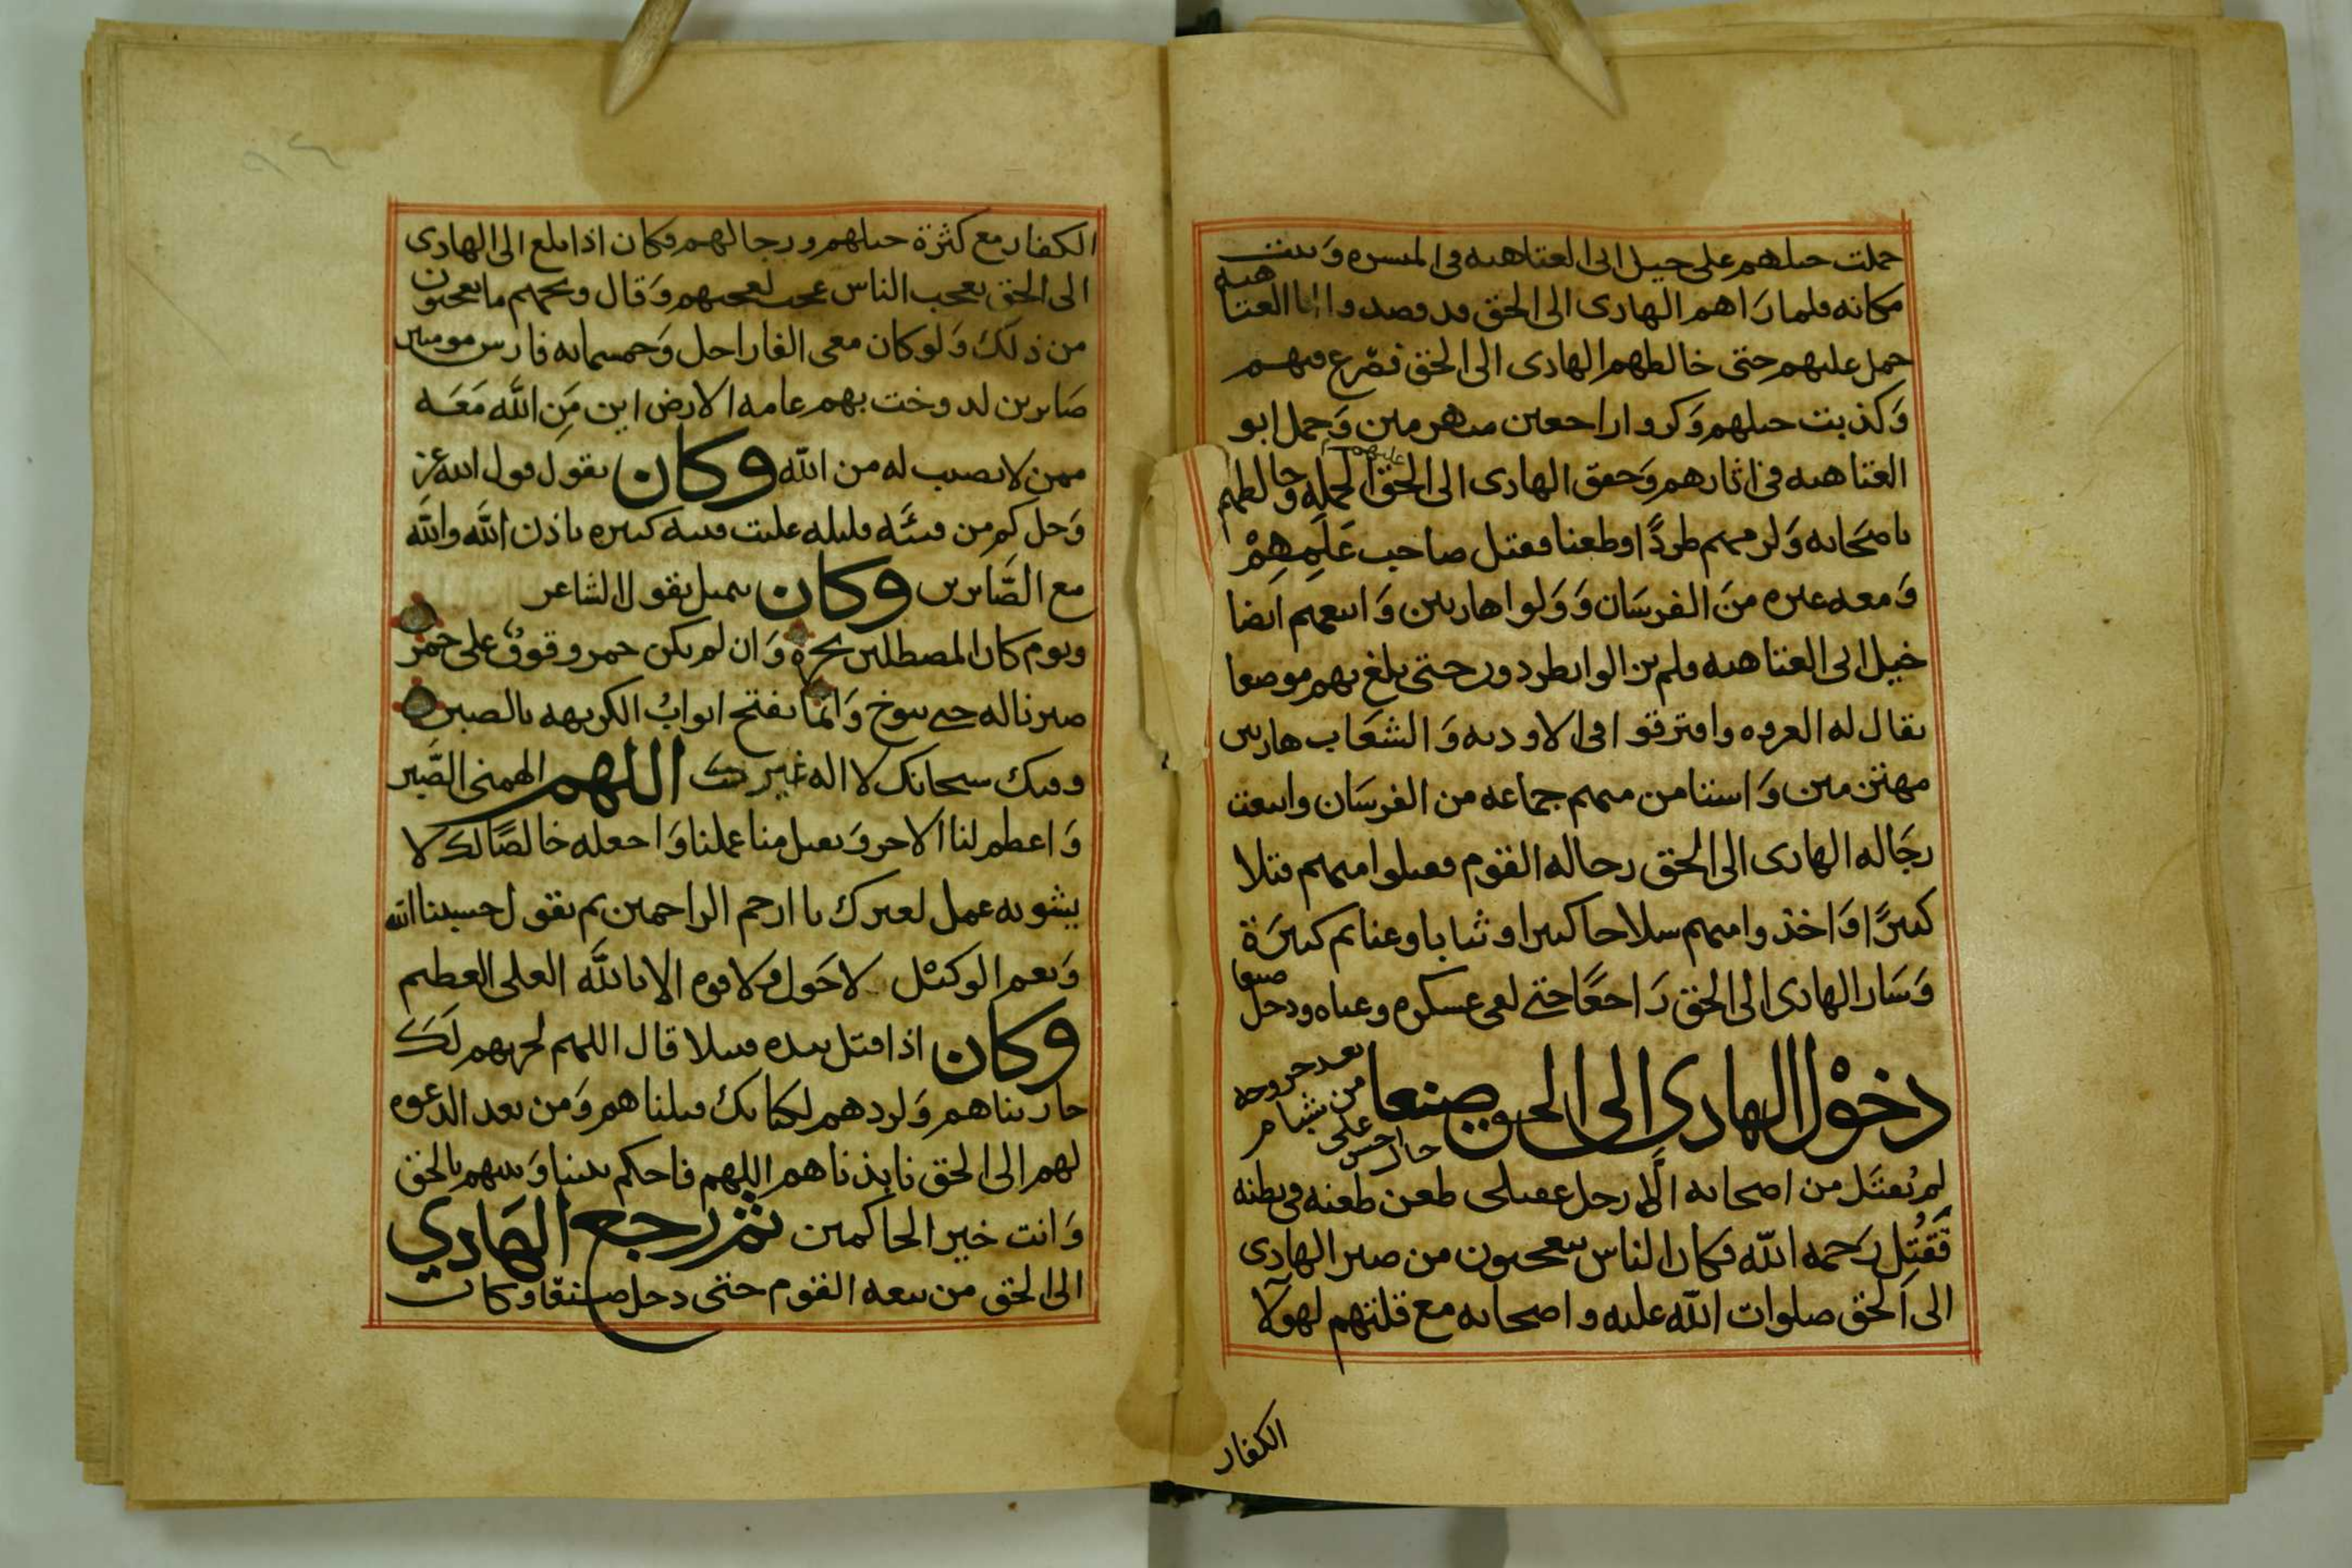 حملت خيلهم على خيل ابى العتاهيه فى الميسره وثبت
مكانه فلما راهم الهادى الى الحق قد قصدوا ابا العتاهيه
حمل عليهم حتى خالطهم الهادى الى الحق فصرع منهم
وكذبت خيلهم وكروا راجعين منهزمين وحمل ابو
العتاهيه فى اثارهم وحقق الهادى الى الحق الحمله عليهم وخالطهم
باصحابه ولزمهم طردًا وطعنا فقتل صاحب علمهم
ومعه غيره من الفرسان وولوا هاربين واتبعهم ايضا
خيل ابى العتاهيه فلم يزالوا يطردون حتى بلغ بهم موضعا
يقال له العروه وافترقوا فى الاوديه والشعاب هاربين
مهتزمين واستامن منهم جماعه من الفرسان واتبعت
رجاله الهادى الى الحق رجاله القوم فقتلوا منهم قتلا
كثيرًا واخذوا منهم سلاحا كثيرا وثيابا وغنايم كثيرة
وسار الهادى الى الحق راجعًا حتى لقى عسكره وعباه ودخل صنعا
دخول الهادى الى الحق صنعا بعد خروجه من شبام على احسن حال
لم يُقتل من اصحابه الا رجل عقيلى طعن طعنه فى بطنه
فقُتِل رحمه الله فكان الناس يتعجبون من صبر الهادى
الى الحق صلوات الله عليه واصحابه مع قلتهم لهولآ
الكفار
الكفار مع كثرة خيلهم ورجالهم فكان اذا بلغ الى الهادى
الى الحق تعجب الناس عجب لعجبهم وقال ويحهم ما يعجبون
من ذلك ولو كان معى الفا راجل وخمسمايه فارس مومنين
صابرين لدوخت بهم عامه الارض اين من الله معه
ممن لا نصيب له من الله وكان يقول قول الله عز
وجل كم من فئه قليله غلبت فئه كثيره باذن الله والله
مع الصابرين وكان يتمثل بقول الشاعر
ويوم كان المصطلين بحره وان لم يكن جمر وقوف على جمر
صبرنا له حتى يبوخ وانما تفتح ابواب الكريهه بالصبر
وفيك سبحانك لا اله غيرك اللهم الهمنى الصبر
واعظم لنا الاجر وتقبل منا عملنا واجعله خالصًا لك لا
يشوبه عمل لغيرك يا ارحم الراحمين ثم يقول حسبنا الله
ونعم الوكيل لا حول ولا قوه الا بالله العلى العظيم
وكان اذا قتل بيده قتيلا قال اللهم لحربهم لك
حاربناهم ولردهم لكتابك قتلناهم ومن بعد الدعوه
لهم الى الحق نابذناهم اللهم فاحكم بيننا وبينهم بالحق
وانت خير الحاكمين ثم رجع الهادي
الى الحق من تبعه القوم حتى دخل صنعا وكان